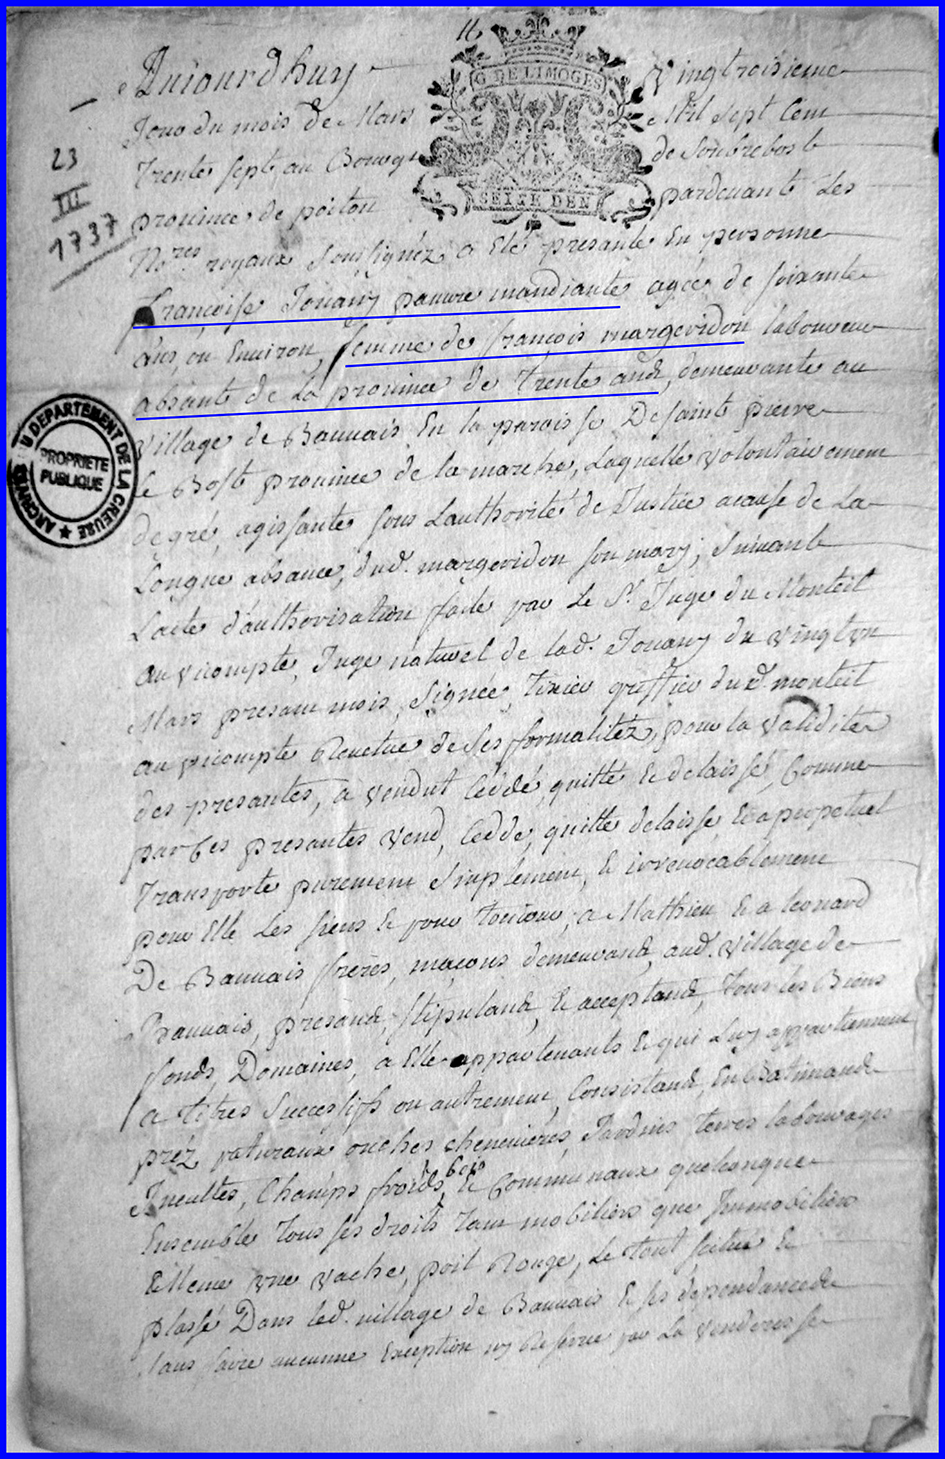 11
G. DE LIMOGES
SEIZE DEN
Aujourdhuy vingtroisieme
Jour du mois de Mars Mil Sept Cent
Trente sept au Bourg de Soubrebost
province de poitou pardevant Les
No.res royaux Soussignéz a Eté presante En personne
françoise Jouany pauvre mandiante agée de soixante
ans, ou Environ, femme de françois margeridon laboureur
absant de La province de Trente ans, demeurante au
village de Bauvais En la paroisse De saint pierre
le Bost province de la marche, Laquelle volontairement
de gré, agissante sous Lauthorité de Justice acause de La
Longue absance, dud. margeridon son mary, Suivant
Lacte d'authorisation faite par Le Sr. Juge du Monteil
au vicompte, Juge naturel de lad. Jouany du vingt un
Mars presant mois, Signée, Tixier greffier dud. monteil
au vicompte Revetue de Ses formalitéz, pour la validité
des presantes, a vendut Céddé, quitté Et delaissé, Comme
par Ces presantes vend, Cedde, quitte delaisse Et a perpetuel
Transporte purement Simplement, Et irrevocablement
pour Elle Les Siens Et pour Toujour, a Mathieu Et a Leonard
De Bauvais frères, maçons demeurand, aud. village de
Bauvais, presand, Stipuland, Et acceptand, Tous les Biens
fonds, Domaines, a Elle appartenants Et qui Luy appartiennent
a titres Successifs ou autrement, Consistand, En Batimands
préz paturaux ouches chenevières, Jardins terres labourages
Incultes, Champs froids, bois Et Communaux quelconque
Ensemble Tous ses droits Tant mobiliers que Immobiliers
Et Meme une vache, poil Rouge, Le tout scitué Et
plassé Dans led. village de Bauvais Et ses dépendances
Sans faire aucunne Exception ny Reserve par La venderesse
23
III
1737
ARCHIVES DU DEPARTEMENT DE LA CREUSE
PROPRIETE
PUBLIQUE